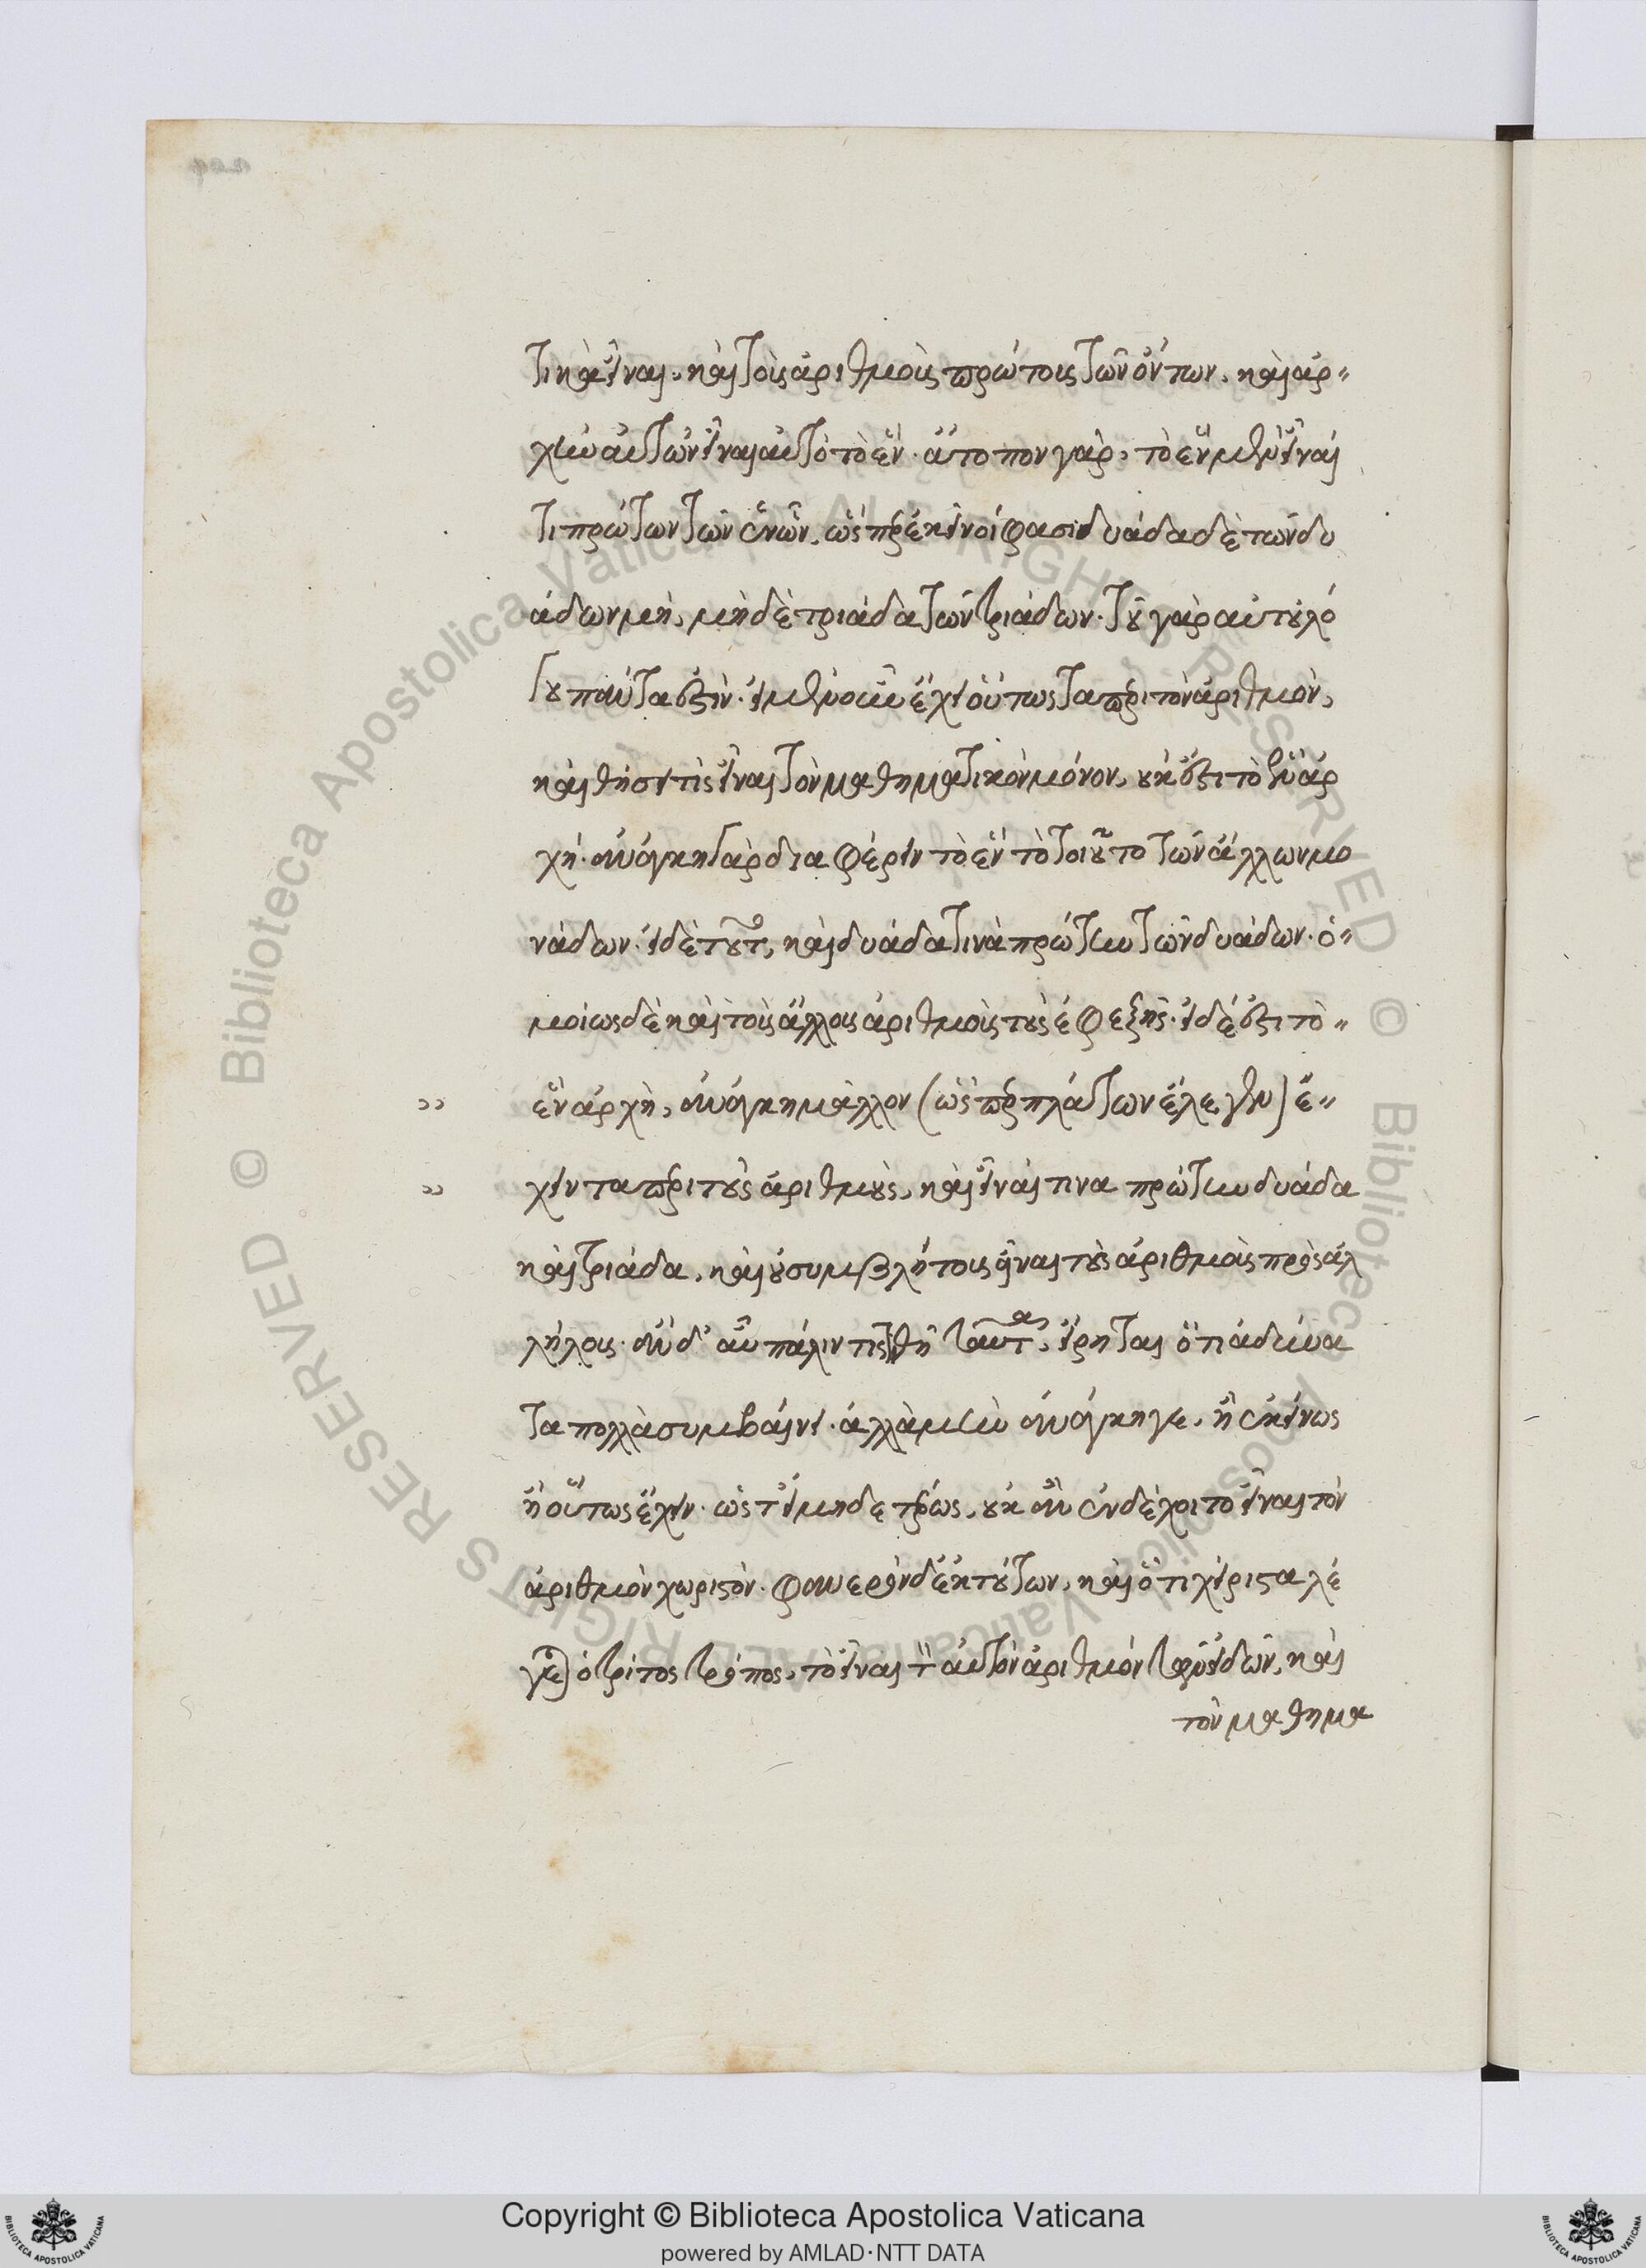 τικὰ εἶναι. καὶ τοὺς ἀριθμοὺς πρώτους τῶν ὄντων, καὶ ἀρ-
χὴν αὐτῶν εἶναι αὐτὸ τὸ ἕν. ἄτοπον γὰρ, τὸ ἓν μὲν εἶναί
τι πρῶτον τῶν ἑνῶν, ὥσπερ ἐκεῖνοί φασι δυάδα δὲ τῶν δυ
άδων μὴ, μηδὲ τριάδα τῶν τριάδων. τοῦ γὰρ αὐτοῦ λό
γου πάντα ἐστίν. εἰ μὲν οὖν ἔχει οὕτως τὰ περὶ τὸν ἀριθμὸν,
καὶ θήσει τὶς εἶναι τὸν μαθηματικὸν μόνον, οὐκ ἔστι τὸ ἓν ἀρ
χή. ἀνάγκη γὰρ διαφέρειν τὸ ἓν τὸ τοιοῦτο τῶν ἄλλων μο
νάδων. εἰ δὲ τοῦτο, καὶ δυάδα τινὰ πρώτην τῶν δυάδων. ὁ-
μοίως δὲ καὶ τοὺς ἄλλους ἀριθμοὺς τοὺς ἐφεξῆς. εἰ δέ ἐστι τὸ-
ἓν ἀρχὴ, ἀνάγκη μᾶλλον (ὥσπερ πλάτων ἔλεγεν) ἔ-
χειν τὰ περὶ τοὺς ἀριθμοὺς, καὶ εἶναί τινα πρώτην δυάδα
καὶ τριάδα, καὶ οὐ συμβλήτους εἶναι τοὺς ἀριθμοὺς πρὸς ἀλ
λήλους. ἂν δ' αὖ πάλιν τις τιθῇ ταῦτα, εἴρηται ὅτι ἀδύνα
τα πολλὰ συμβαίνει. ἀλλὰ μὴν ἀνάγκη γε, ἢ ἐκείνως
ἢ οὕτως ἔχειν. ὥστ' εἰ μηδετέρως, οὐκ ἂν ἐνδέχοιτο εἶναι τὸν
ἀριθμὸν χωριστόν. φανερὸν δὲ ἐκ τούτων, καὶ ὅτι χείριστα λέ
γεται ὁ τρίτος τρόπος, τὸ εἶναι τὸν αὐτὸν ἀριθμόν τὸν τῶν εἰδῶν, καὶ
τὸν μαθημα
Copyright © Biblioteca Apostolica Vaticana
powered by AMLAD·NTT DATA